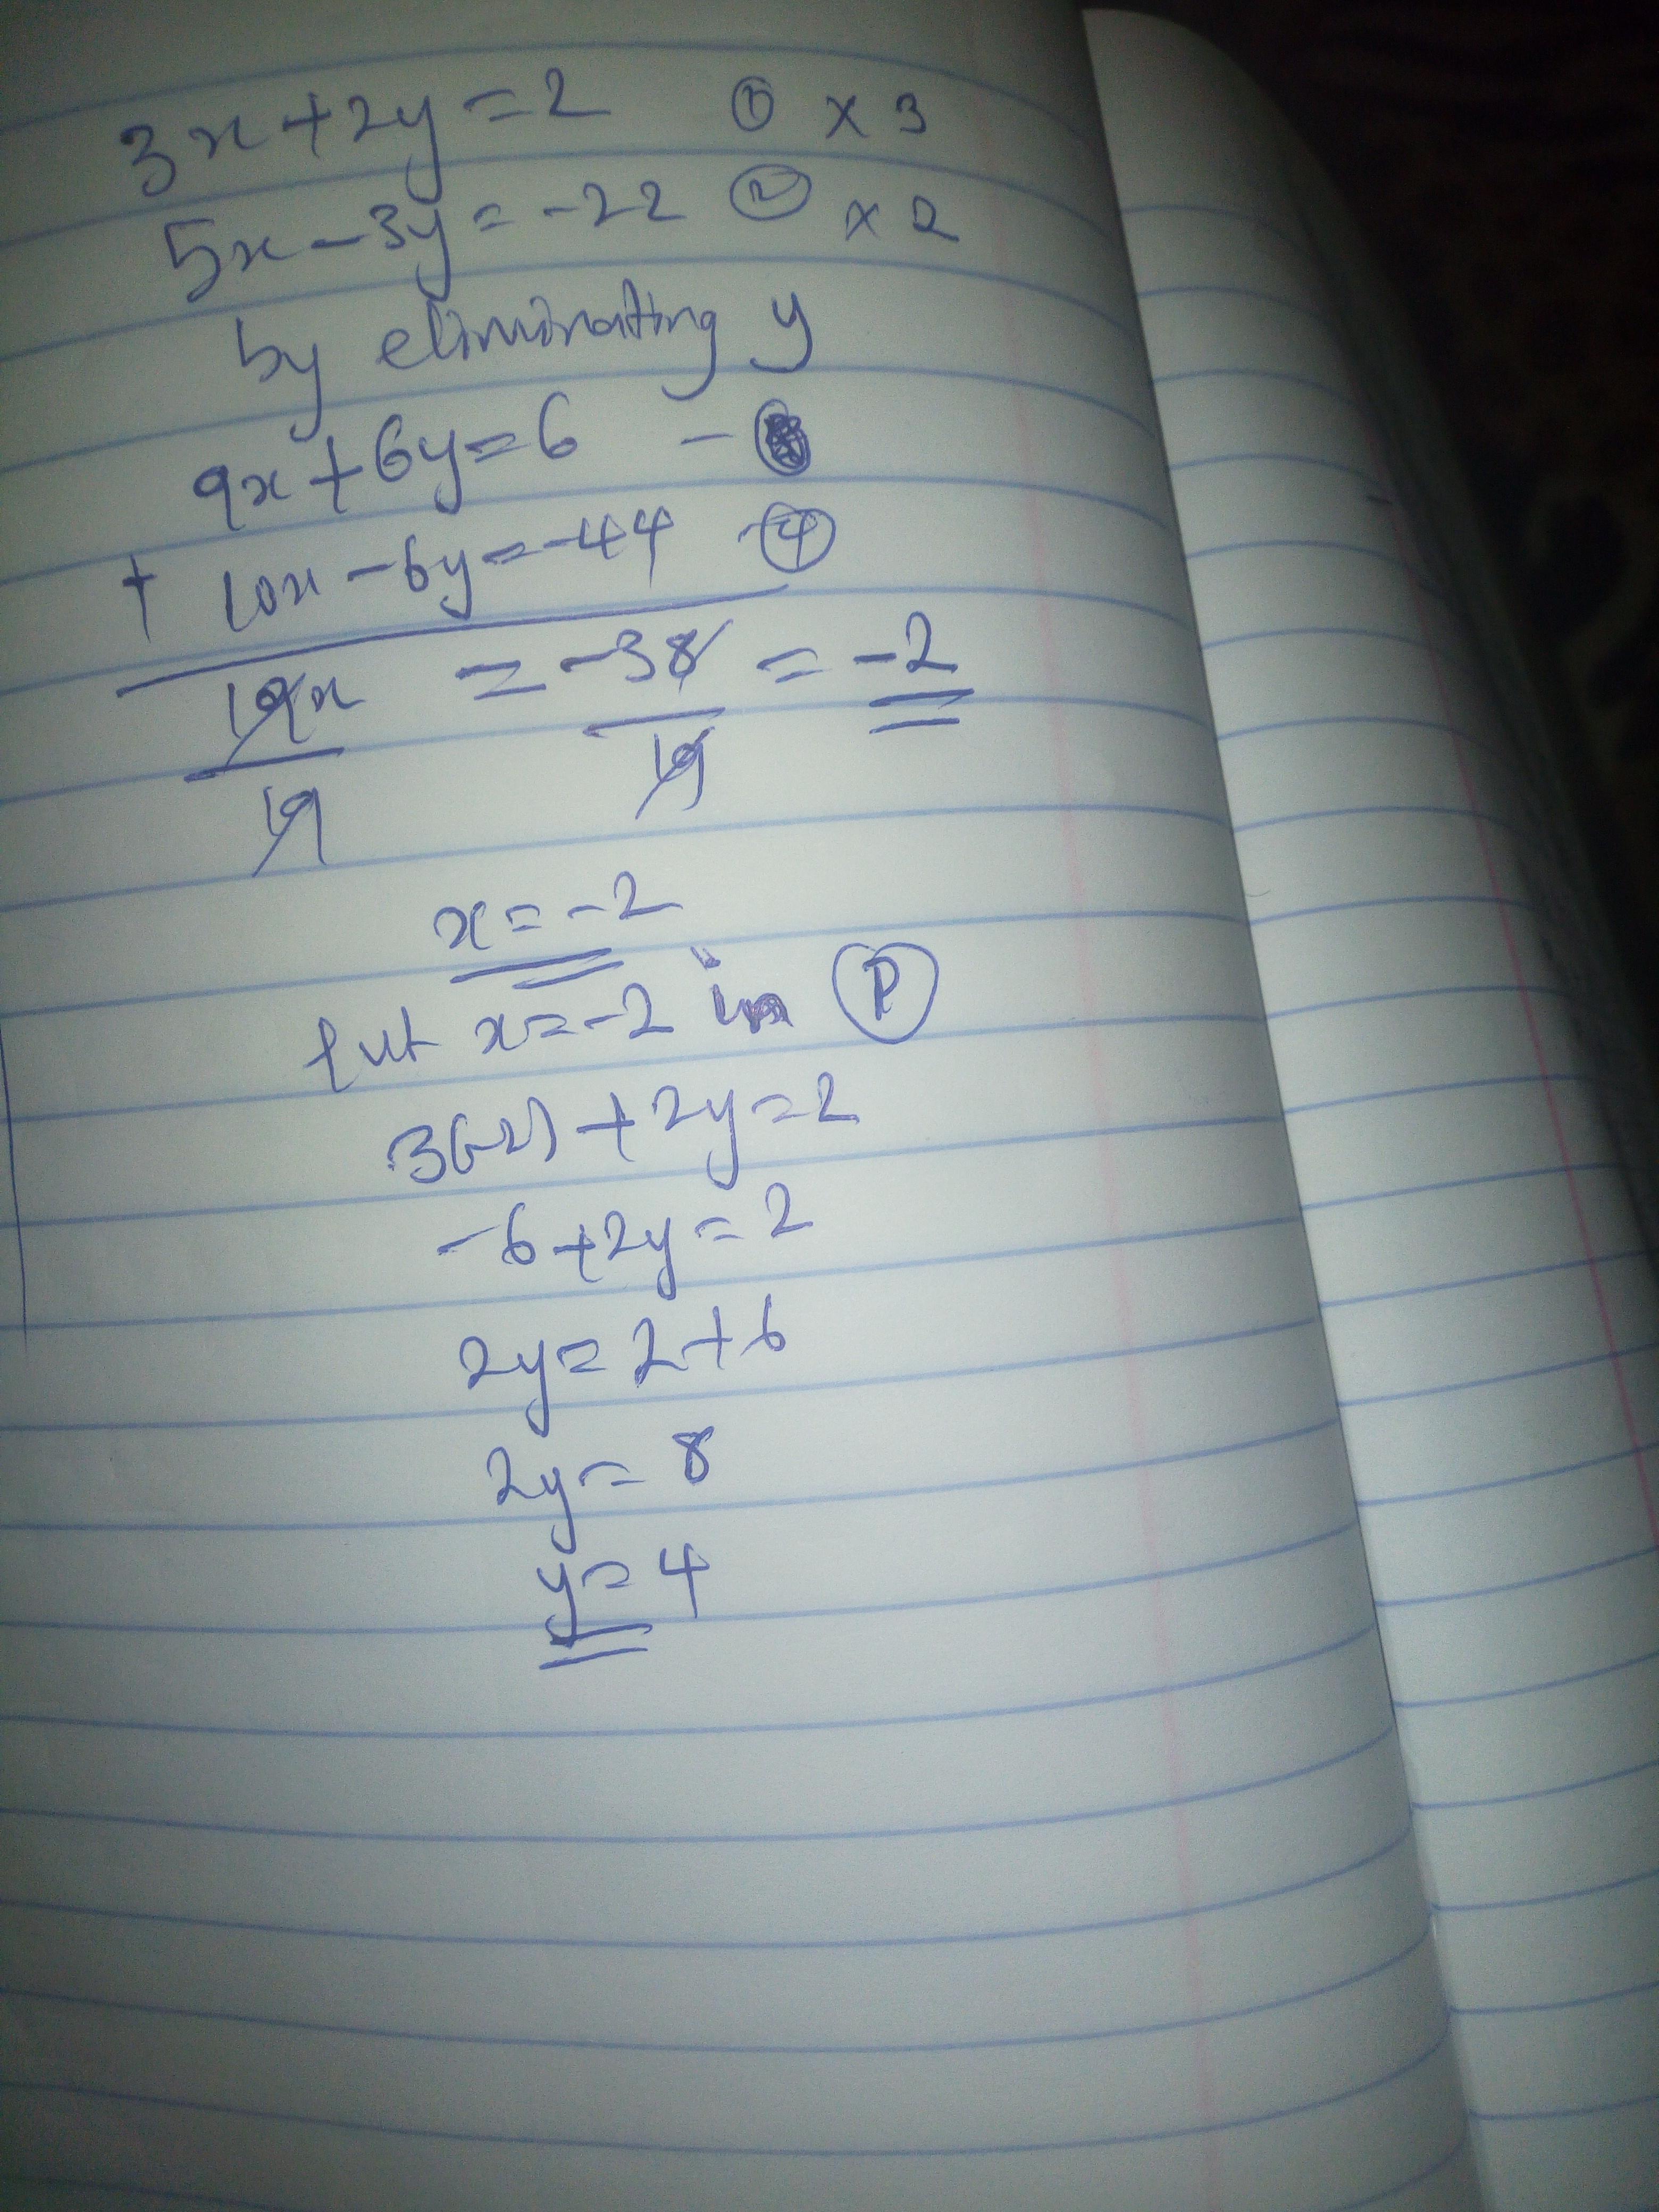 3x+2y=2 ① × 3
5x-3y=-22 ② × 2
by eliminating y
9x+6y=6 -
+ 10x-6y=-44 ④
19x/19 = -38/19 = -2
x=-2
put x=-2 in ①
3(-2)+2y=2
-6+2y=2
2y=2+6
2y=8
y=4